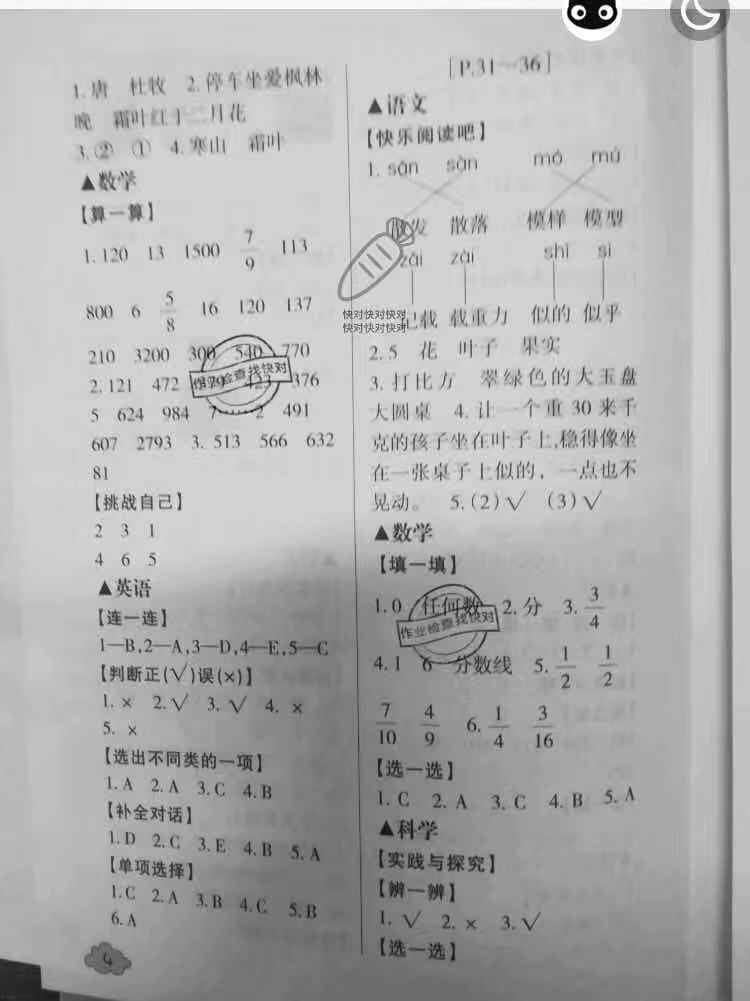 1.唐 杜牧 2.停车坐爱枫林
晚 霜叶红于二月花
3.② ① 4.寒山 霜叶
▲数学
【算一算】
1.120 13 1500 7/9 113
800 6 5/8 16 120 137
210 3200 300 540 770
2.121 472 423 376
5 624 984 2 491
607 2793 3.513 566 632
81
【挑战自己】
2 3 1
4 6 5
▲英语
【连一连】
1—B,2—A,3—D,4—E,5—C
【判断正(√)误(×)】
1.× 2.√ 3.√ 4.×
5.×
【选出不同类的一项】
1.A 2.A 3.C 4.B
【补全对话】
1.D 2.C 3.E 4.B 5.A
【单项选择】
1.C 2.A 3.B 4.C 5.B
6.A
4
[P.31～36]
▲语文
【快乐阅读吧】
1.sǎn sàn mó mú
散发 散落 模样 模型
zǎi zài shì sì
记载 载重力 似的 似乎
2.5 花 叶子 果实
3.打比方 翠绿色的大玉盘
大圆桌 4.让一个重30来千
克的孩子坐在叶子上,稳得像坐
在一张桌子上似的，一点也不
晃动。 5.(2)√ (3)√
▲数学
【填一填】
1.0 任何数 2.分 3.3/4
4.1 6 分数线 5.1/2 1/2
7/10 4/9 6.1/4 3/16
【选一选】
1.C 2.A 3.C 4.B 5.A
▲科学
【实践与探究】
【辨一辨】
1.√ 2.× 3.√
【选一选】
快对快对快对
快对快对快对
作业检查找快对
作业检查找快对